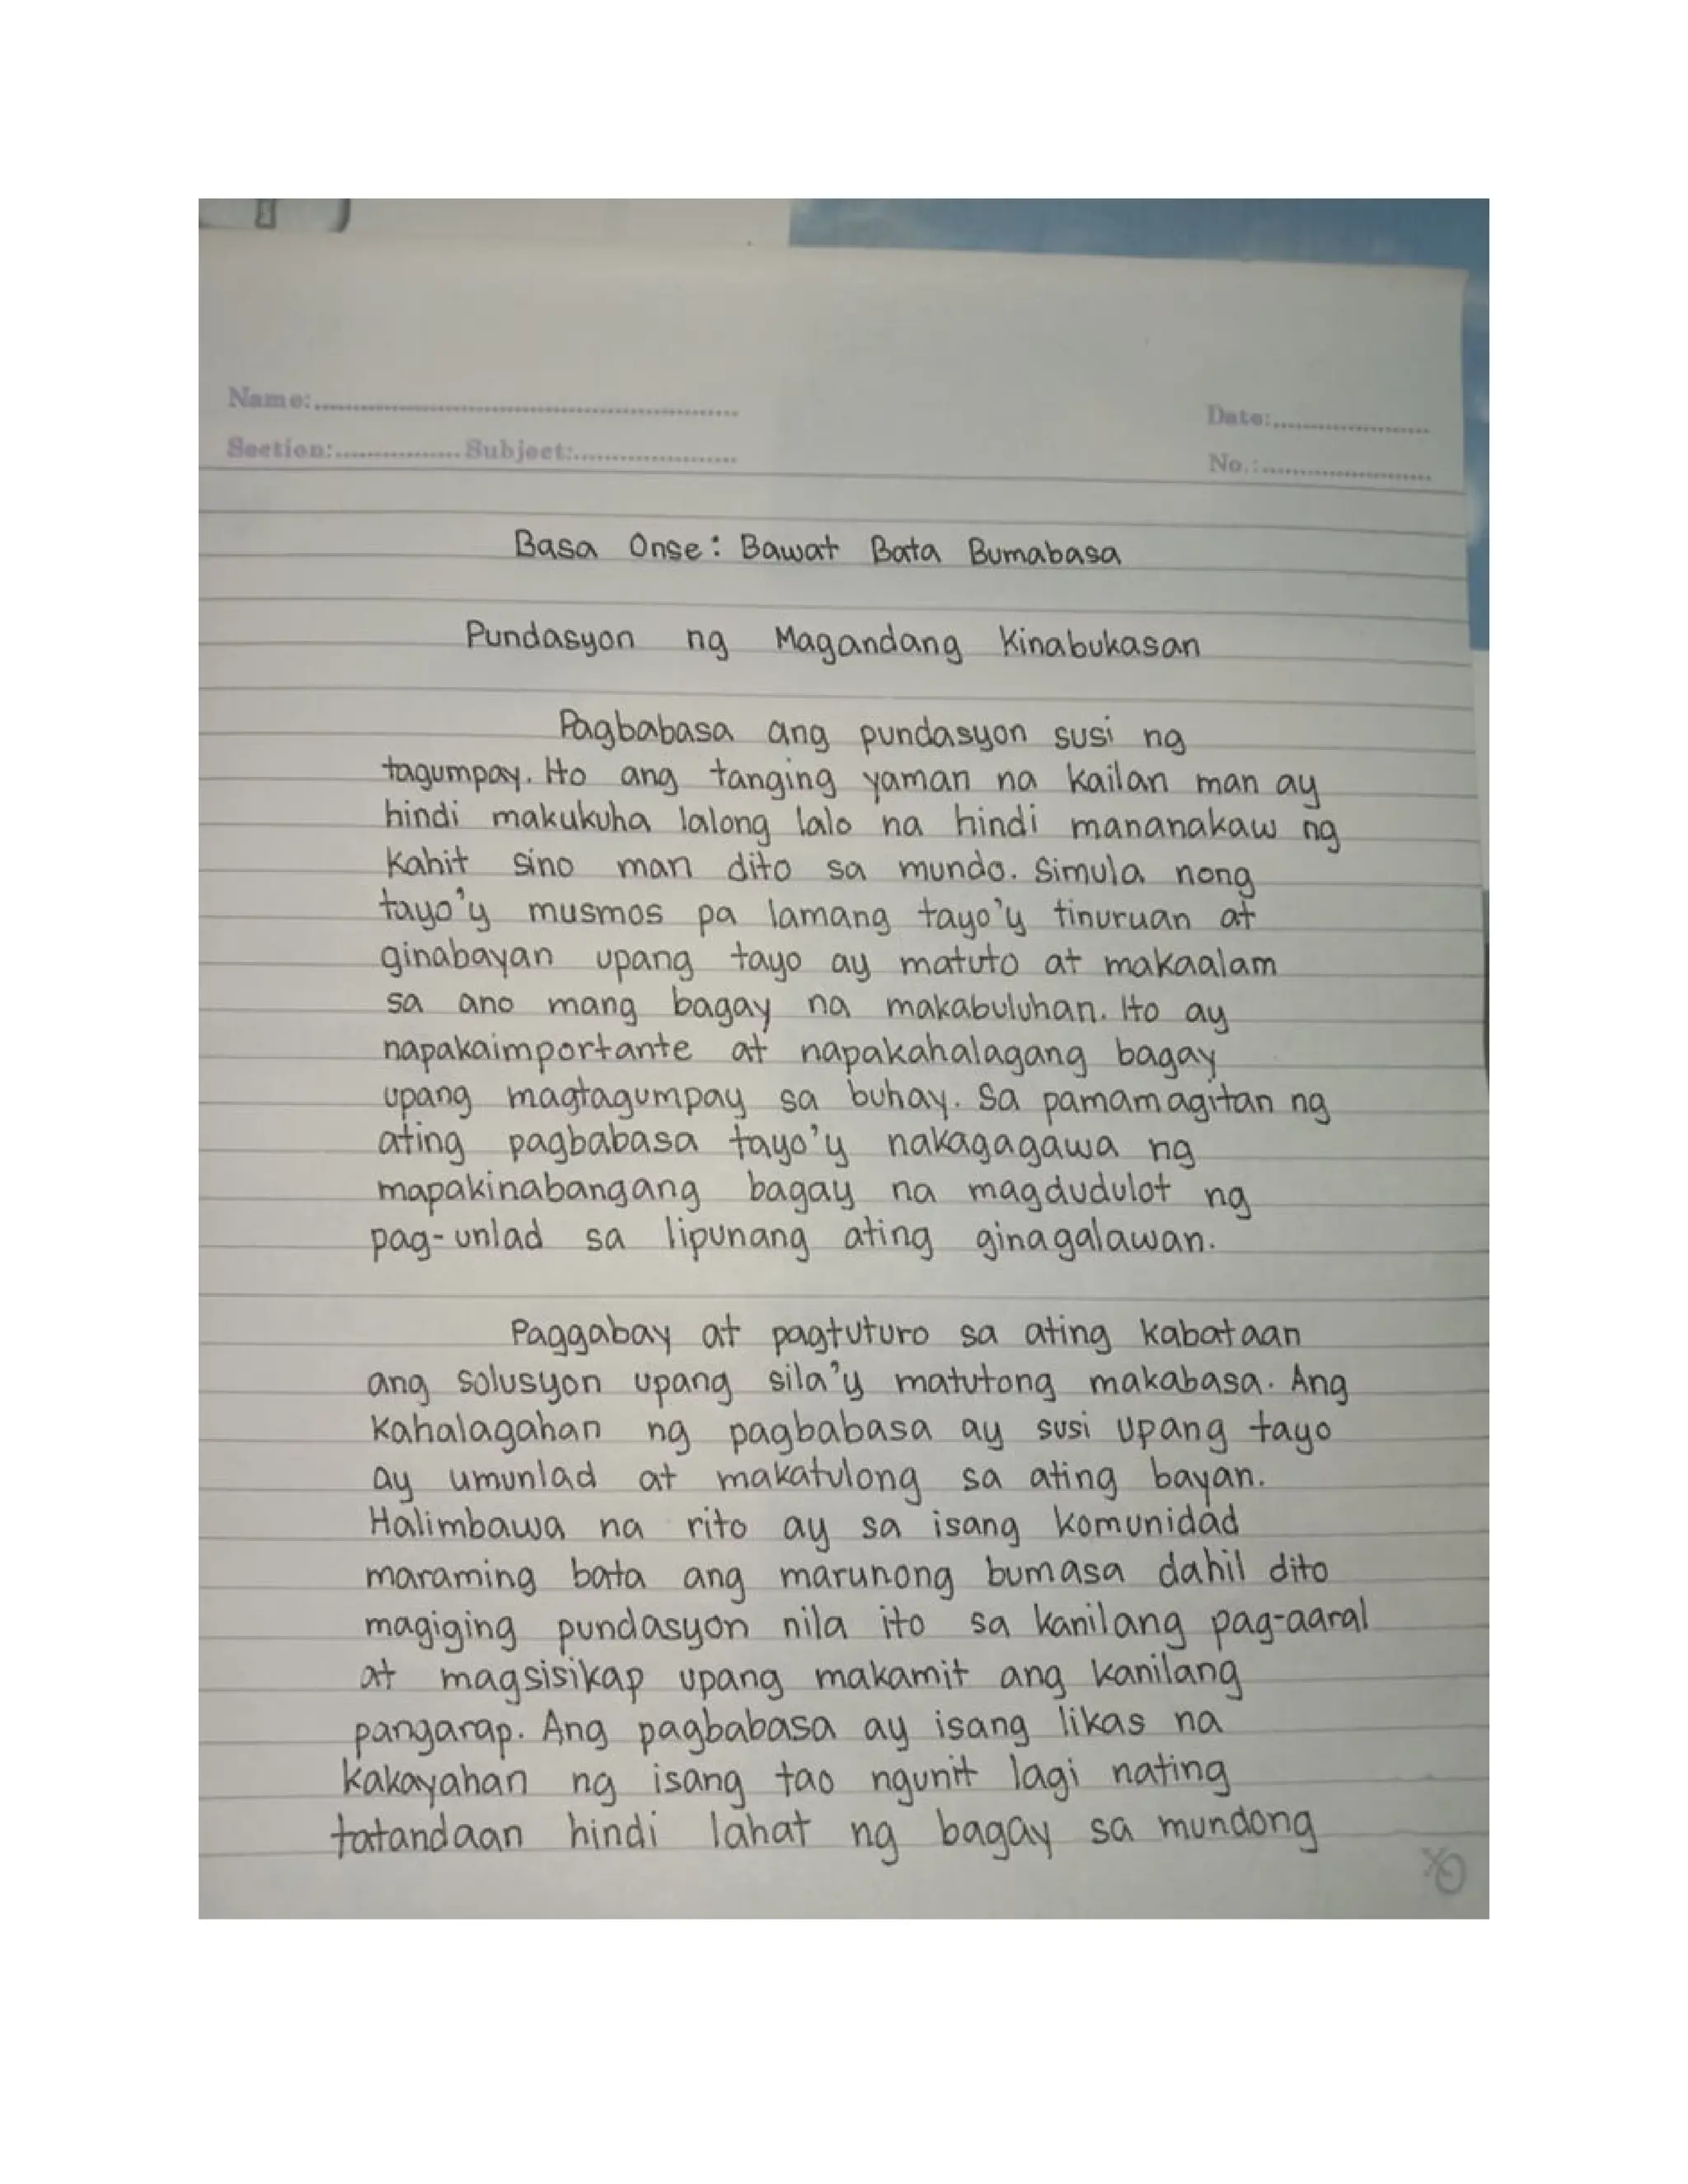 Name:
Date:
Section: Subject:
No.:
Basa Onse: Bawat Bata Bumabasa
Pundasyon ng Magandang Kinabukasan
Pagbabasa ang pundasyon susi ng
tagumpay. Ito ang tanging yaman na kailan man ay
hindi makukuha lalong lalo na hindi mananakaw ng
kahit sino man dito sa mundo. Simula nong
tayo'y musmos pa lamang tayo'y tinuruan at
ginabayan upang tayo ay matuto at makaalam
sa ano mang bagay na makabuluhan. Ito ay
napakaimportante at napakahalagang bagay
upang magtagumpay sa buhay. Sa pamamagitan ng
ating pagbabasa tayo'y nakagagawa ng
mapakinabangang bagay na magdudulot ng
pag-unlad sa lipunang ating ginagalawan.
Paggabay at pagtuturo sa ating kabataan
ang solusyon upang sila'y matutong makabasa. Ang
kahalagahan ng pagbabasa ay susi upang tayo
ay umunlad at makatulong sa ating bayan.
Halimbawa na rito ay sa isang komunidad
maraming bata ang marunong bumasa dahil dito
magiging pundasyon nila ito sa kanilang pag-aaral
at magsisikap upang makamit ang kanilang
pangarap. Ang pagbabasa ay isang likas na
kakayahan ng isang tao ngunit lagi nating
tatandaan hindi lahat ng bagay sa mundong